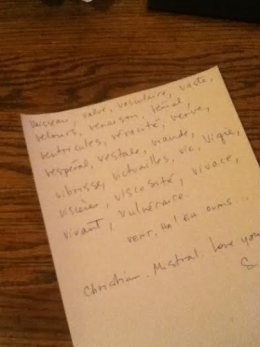 vaisseau, valve, vasculaire, vaste,
velours, venaison, vénal,
ventricules, véracité, verve,
vespéral, vestale, viande, vigie,
vibrisse, victuailles, vie,
viscère, viscosité, vivace,
vivant, vulnéraire.
Christian. Mistral. Love you